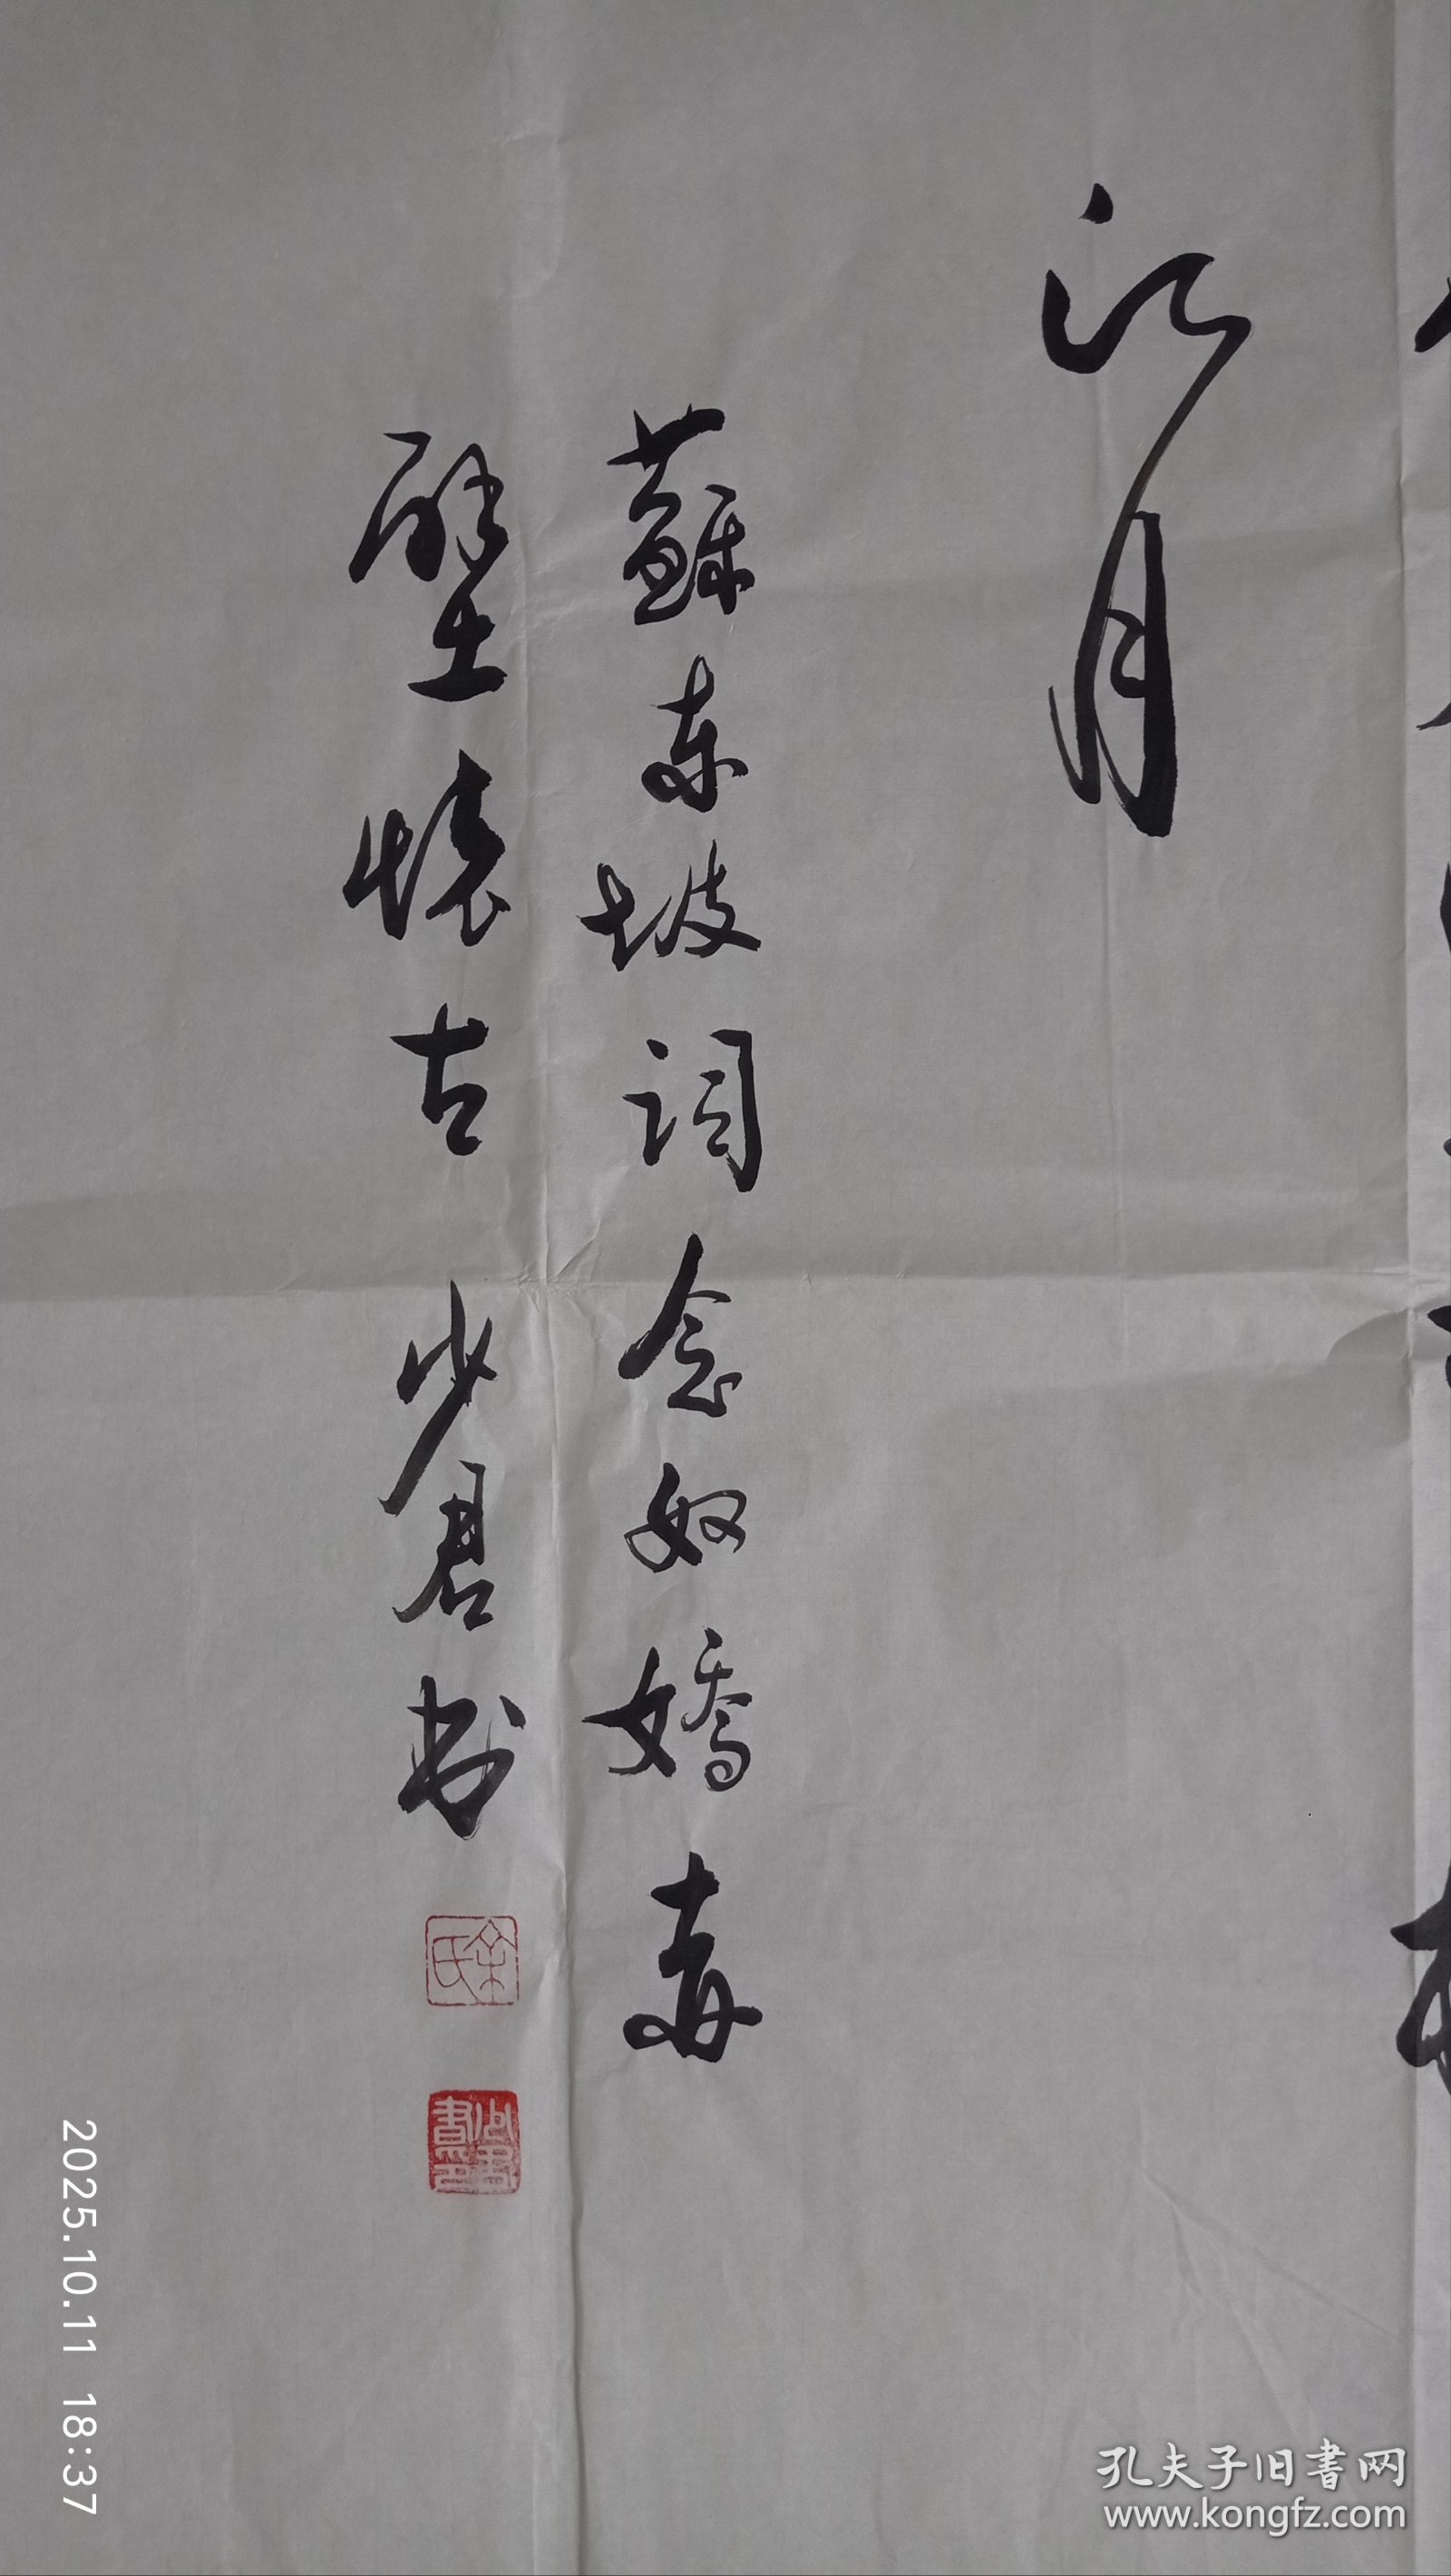 江月
蘇東坡词念奴嬌赤
壁懷古 少君书
氏
少君書画
2025.10.11 18:37
孔夫子旧書网
www.kongfz.com